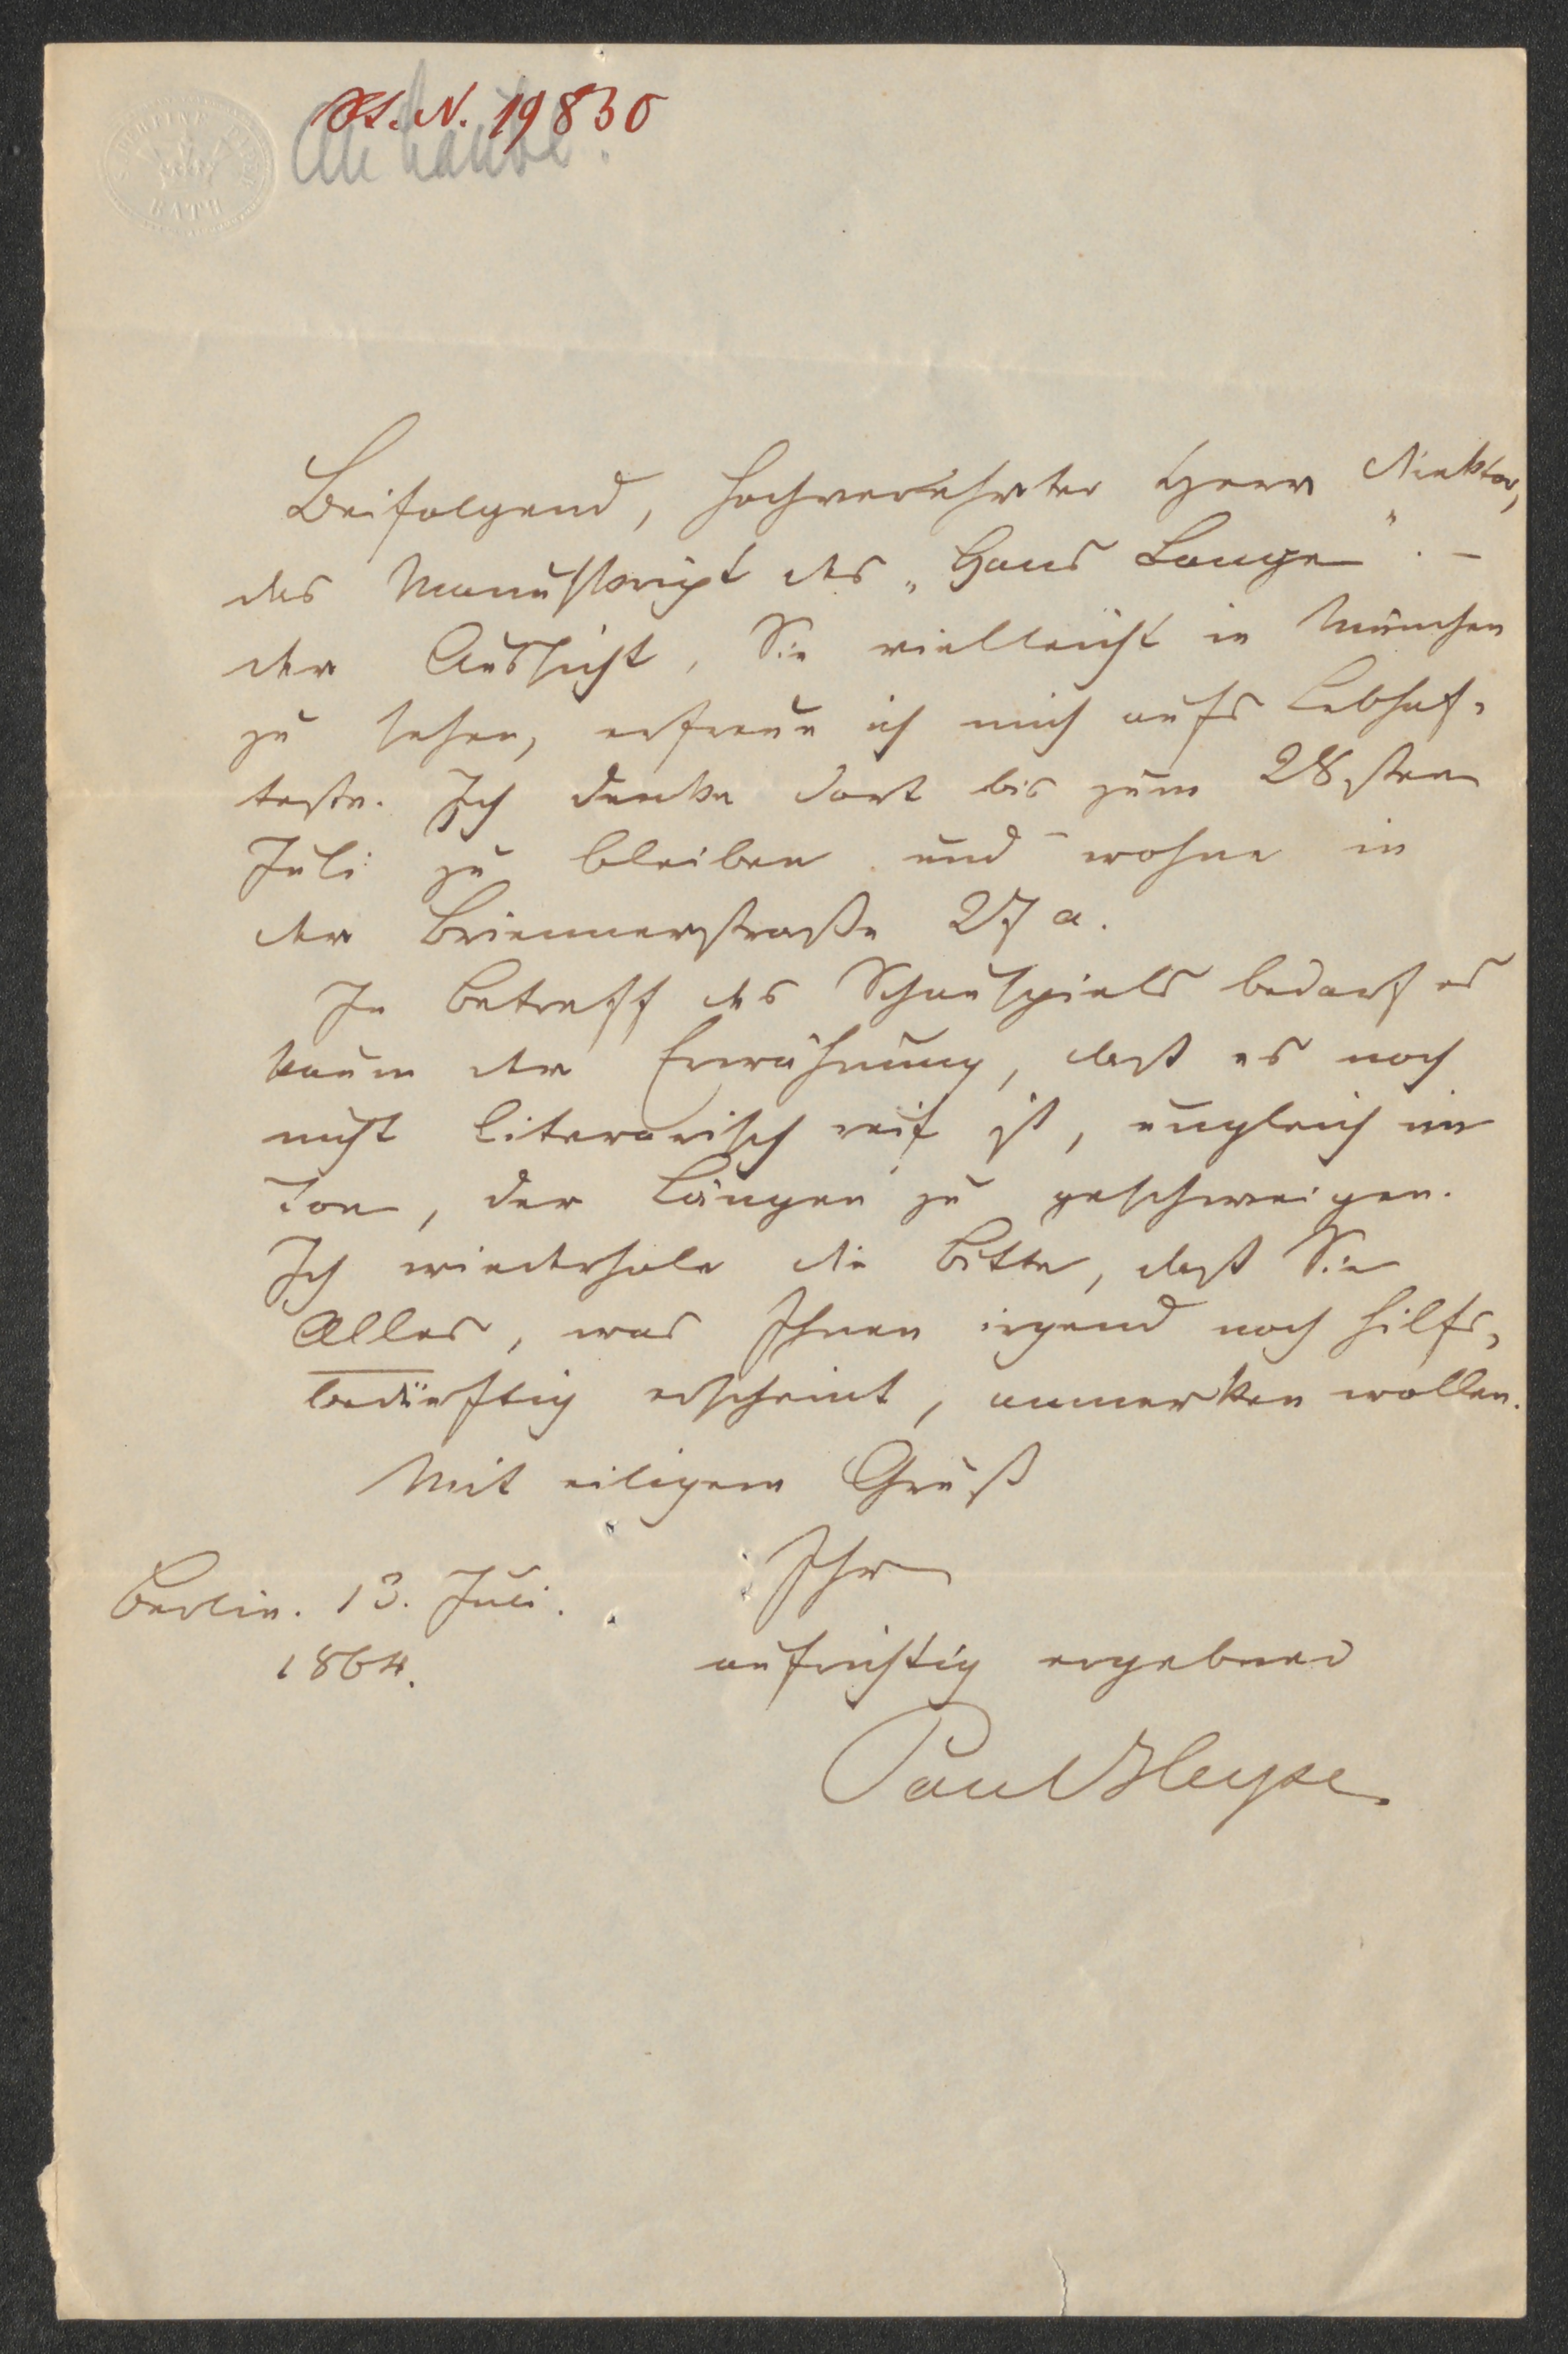 SUPERFINE
BATH
I.N. 19830
An Laube.
Beifolgend, hochverehrter Herr Direktor,
das Manuskript des „Hans Lange". –
der Aussicht, Sie vielleicht in München
zu sehen, erfreue ich mich aufs Lebhaf-
teste. Ich denke dort bis zum 28sten
Juli zu bleiben und wohne in
der Briennerstraße 27 a.
In Betreff des Schauspiels bedarf es
kaum der Erwähnung, daß es noch
nicht literarisch reif ist, ungleich im
Ton, der Längen zu geschweigen.
Ich wiederhole die Bitte, daß Sie
Alles, was Ihnen irgend noch hilfs-
bedürftig erscheint, anmerken wollen.
Mit eiligem Gruß
Ihr
Berlin. 13. Juli.
1864.
aufrichtig ergebner
Paul Heyse.